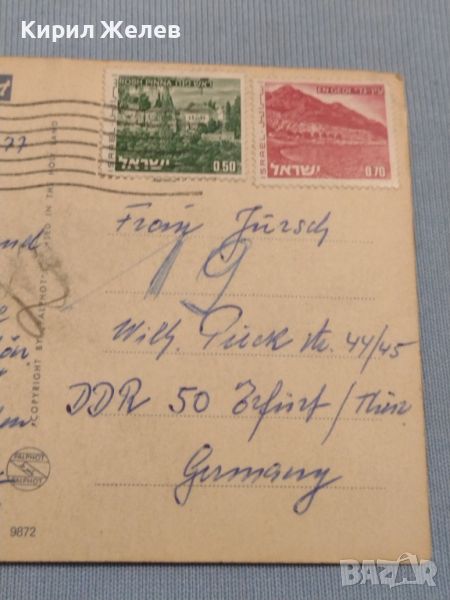 Кирил Желев
ROSH PINNA ראש פנה
ISRAEL
ישראל
0.50
EN GEDI עין גדי
ISRAEL
ישראל
0.70
77
Frau Jursch
19
Wilh. Pieck Str. 44/45
DDR 50 Erfurt / Thür
Germany
nd
den
COPYRIGHT BY PALPHOT
IN THE HOLY LAND
PALPHOT
PALPHOT
9872
BAZAR